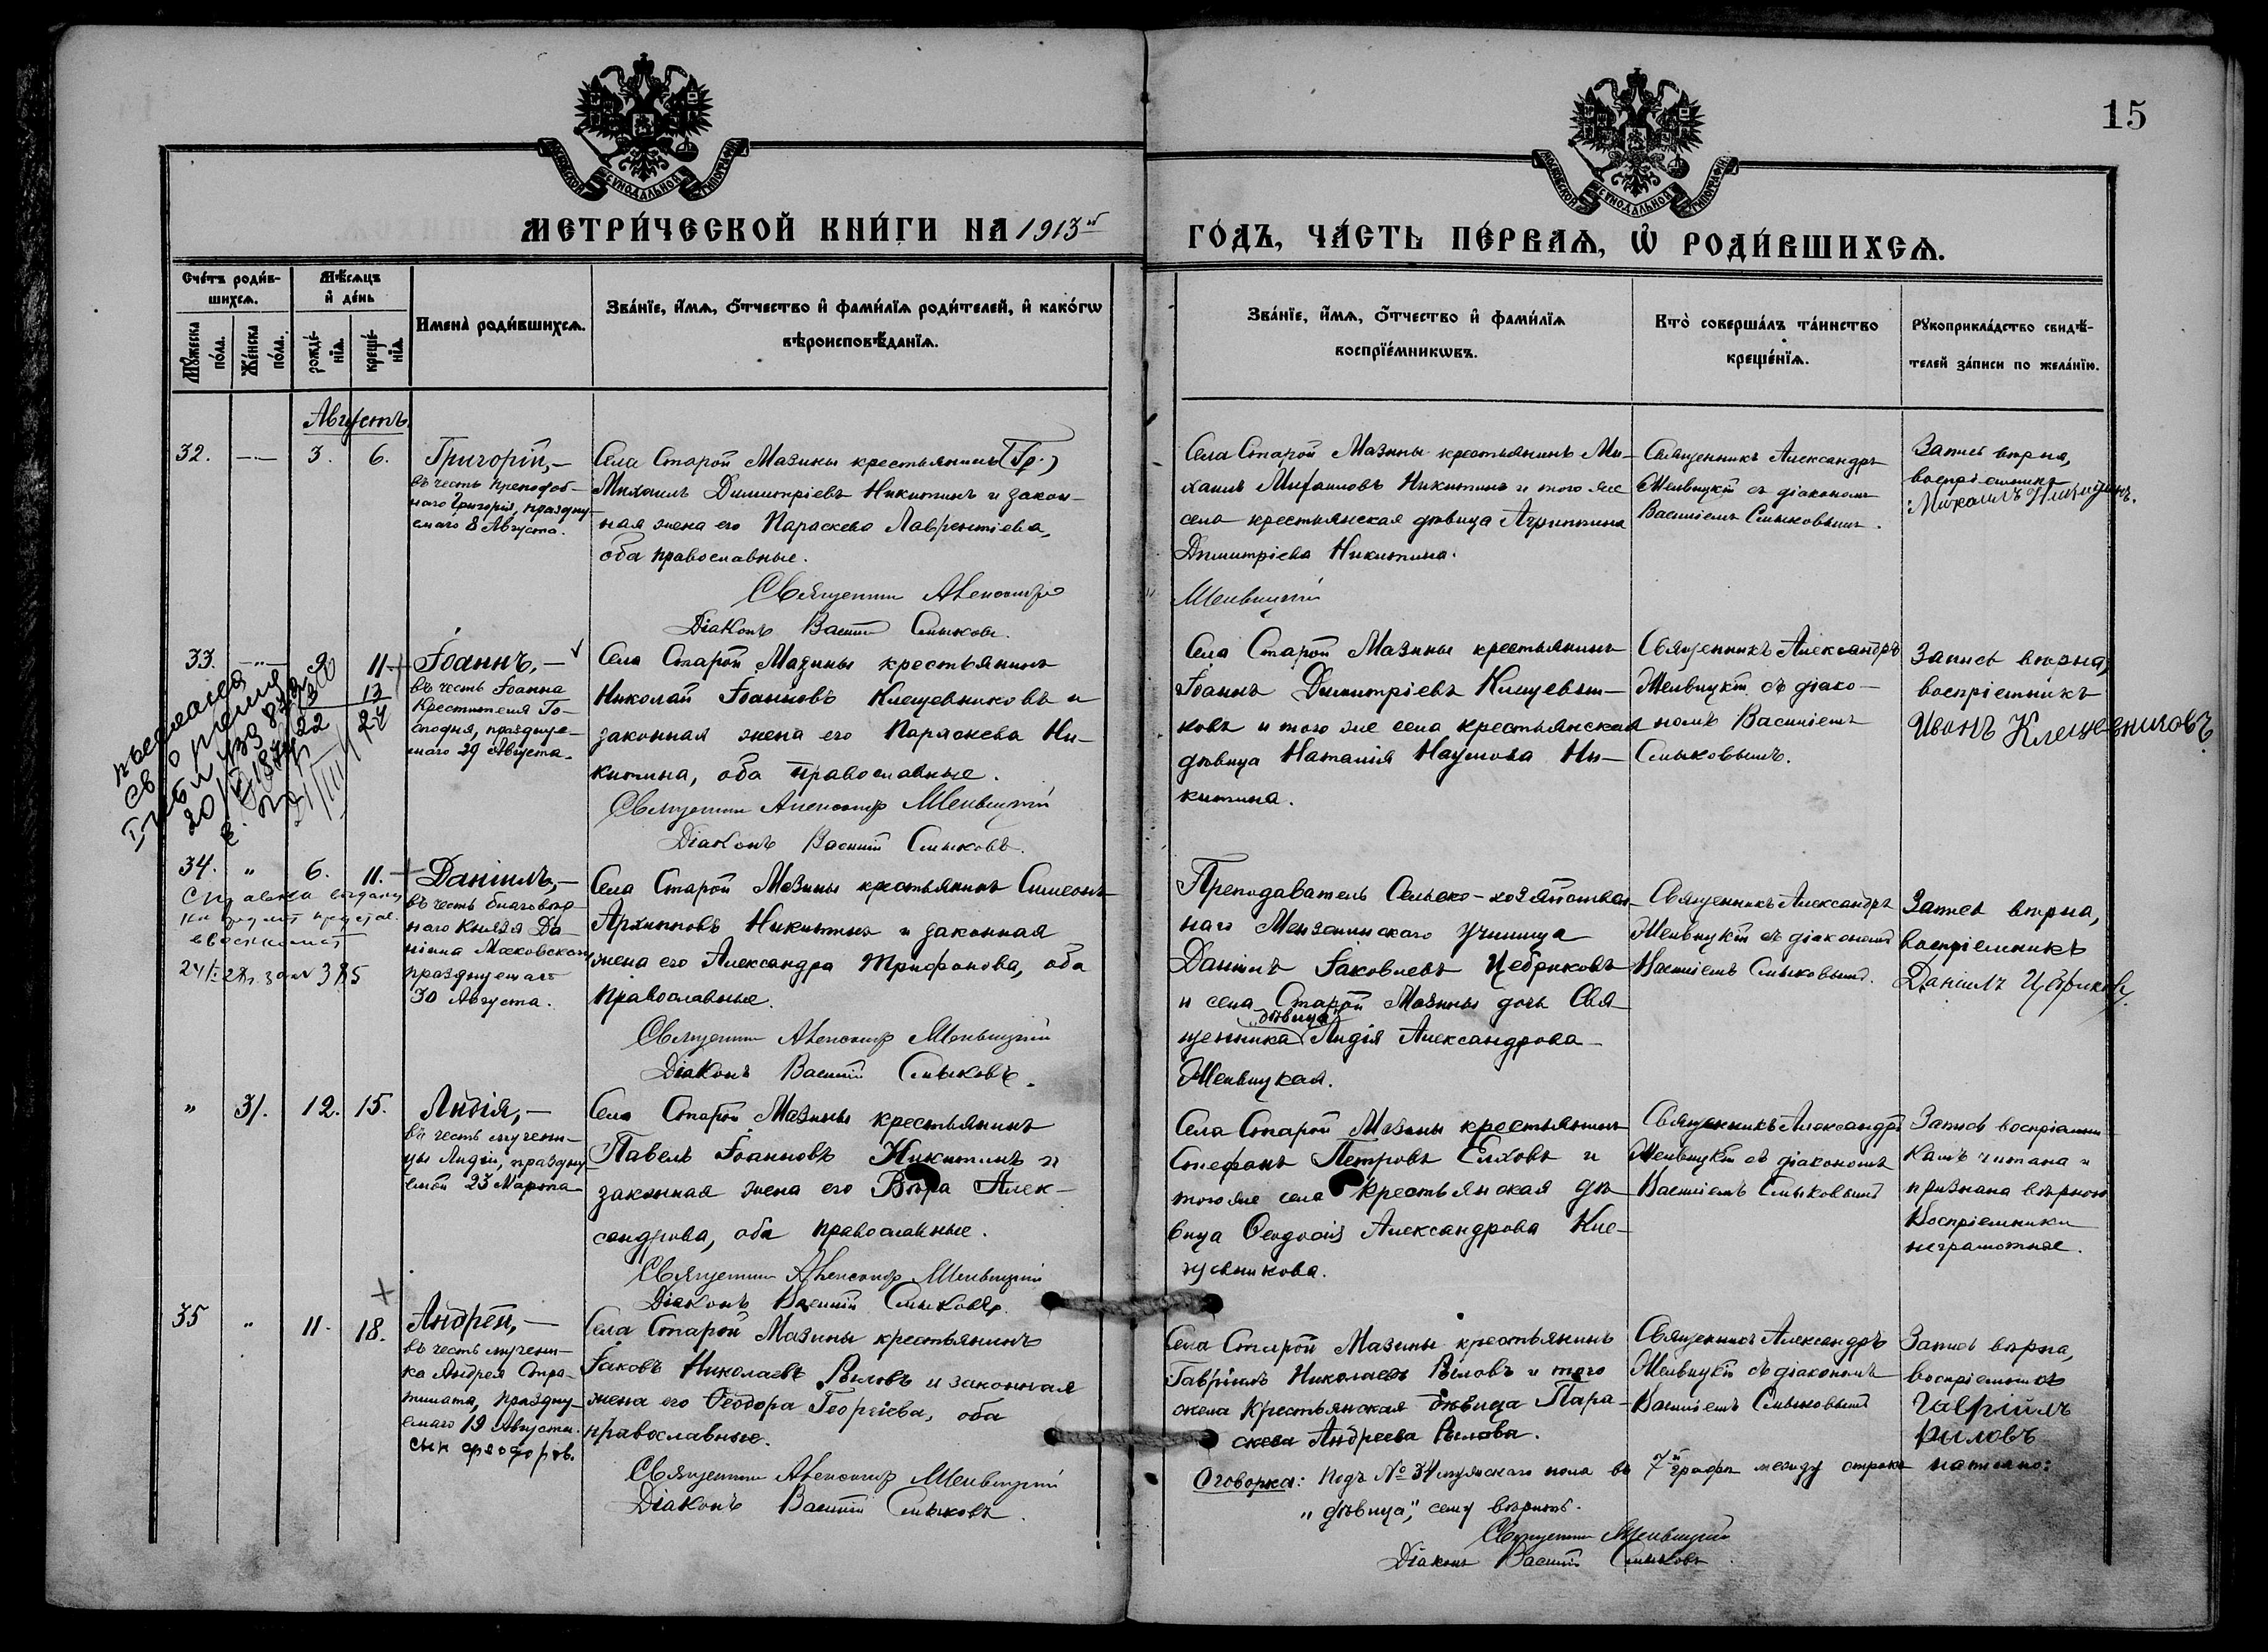 15
МОСКОВСКОЙ СѴНОДАЛЬНОЙ ТИПОГРАФІИ
МОСКОВСКОЙ СѴНОДАЛЬНОЙ ТИПОГРАФІИ
МЕТРИ́ЧЕСКОЙ КНИ́ГИ НА 1913й
ГО́ДЪ, ЧА́СТЬ ПЕ́РВАѦ, Ѡ҆ РОДИ́ВШИХСѦ.
Сче́тъ роди́в-
шихсѧ.
Мꙋ́жеска по́ла.
Же́нска по́ла.
Мѣ́сѧцъ
и҆ де́нь
рожде́-
нїѧ.
креще́-
нїѧ.
Имена̀ роди́вшихсѧ.
Зва́нїе, и҆́мѧ, ѻ҆́тчество и҆ фами́лїѧ роди́телей, и҆ како́гѡ
вѣроисповѣ́данїѧ.
Зва́нїе, и҆́мѧ, ѻ҆́тчество и҆ фами́лїѧ
воспрїе́мникѡвъ.
Кто̀ соверша́лъ та́инство
креще́нїѧ.
Рꙋкоприкла́дство свидѣ́-
телей за́писи по жела́нїю.
Августъ.
32. — 3. 6.
Григорій,—
въ честь преподоб-
наго Григорія, праздну-
емаго 8 Августа.
Села Старой Мазины крестьянинъ (Гр.)
Михаилъ Димитріевъ Никитинъ и закон-
ная жена его Параскева Лаврентіева,
оба православные.
Священникъ Александръ
Діаконъ Василій Смыковъ.
Села Старой Мазины крестьянинъ Ми-
хаилъ Михаиловъ Никитинъ и того же
села крестьянская дѣвица Агриппина
Димитріева Никитина.
Священникъ Александръ
съ діакономъ
Василіемъ Смыковымъ.
Запись вѣрна,
воспріемникъ
Михаилъ Никитинъ.
33. — " — 9 11
13
22 24
Іоаннъ,—
въ честь Іоанна
Крестителя Го-
сподня, празднуе-
маго 29 Августа.
Села Старой Мазины крестьянинъ
Николай Іоанновъ Клещевниковъ и
законная жена его Параскева Ни-
китина, оба православные.
Священникъ Александръ
Діаконъ Василій Смыковъ.
Села Старой Мазины крестьянинъ
Іоаннъ Димитріевъ Клещевни-
ковъ и того же села крестьянская
дѣвица Наталія Наумова Ни-
китина.
Священникъ Александръ
съ діако-
номъ Василіемъ
Смыковымъ.
Запись вѣрна,
воспріемникъ
Иванъ Клещевниковъ.
34. " 6. 11.
Даніилъ,—
въ честь благовѣр-
наго Князя Да-
ніила Московскаго
празднуемаго
30 Августа.
Села Старой Мазины крестьянинъ Симеонъ
Архипповъ Никитинъ и законная
жена его Александра Трифонова, оба
православные.
Священникъ Александръ
Діаконъ Василій Смыковъ.
Преподаватель Сельско-хозяйствен-
наго Мензелинскаго училища
Даніилъ Іаковлевъ Цебриковъ
и села Старой Мазины дочь Свя-
"дѣвица"
щенника Лидія Александрова
Священникъ Александръ
съ діакономъ
Василіемъ Смыковымъ.
Запись вѣрна,
воспріемникъ
Даніилъ Цебриковъ.
" 31. 12. 15.
Лидія,—
въ честь мучени-
цы Лидіи, праздну-
емой 23 Марта
Села Старой Мазины крестьянинъ
Павелъ Іоанновъ Никитинъ и
законная жена его Вѣра Алек-
сандрова, оба православные.
Священникъ Александръ
Діаконъ Василій Смыковъ.
Села Старой Мазины крестьянинъ
Стефанъ Петровъ Елховъ и
того же села крестьянская дѣ-
вица Ѳеодосія Александрова Кле-
щевникова.
Священникъ Александръ
съ діакономъ
Василіемъ Смыковымъ
Запись воспріемни-
камъ читана и
признана вѣрною
Воспріемники
неграмотные.
35 " 11. 18.
Андрей,—
въ честь мучени-
ка Андрея Стра-
тилата, праздну-
емаго 19 Августа.
сын Феодоров.
Села Старой Мазины крестьянинъ
Іаковъ Николаевъ Рыловъ и законная
жена его Ѳеодора Георгіева, оба
православные.
Священникъ Александръ
Діаконъ Василій Смыковъ.
Села Старой Мазины крестьянинъ
Гавріилъ Николаевъ Рыловъ и того
жела крестьянская дѣвица Пара-
скева Андреева Рылова.
Священникъ Александръ
съ діакономъ
Василіемъ Смыковымъ
Запись вѣрна,
воспріемникъ
Гавріилъ
Рыловъ
Оговорка: Подъ № 34 мужскаго пола въ 7й графѣ между строкъ написано:
"дѣвица", сему вѣрить.
Священникъ
Діаконъ Василій Смыковъ